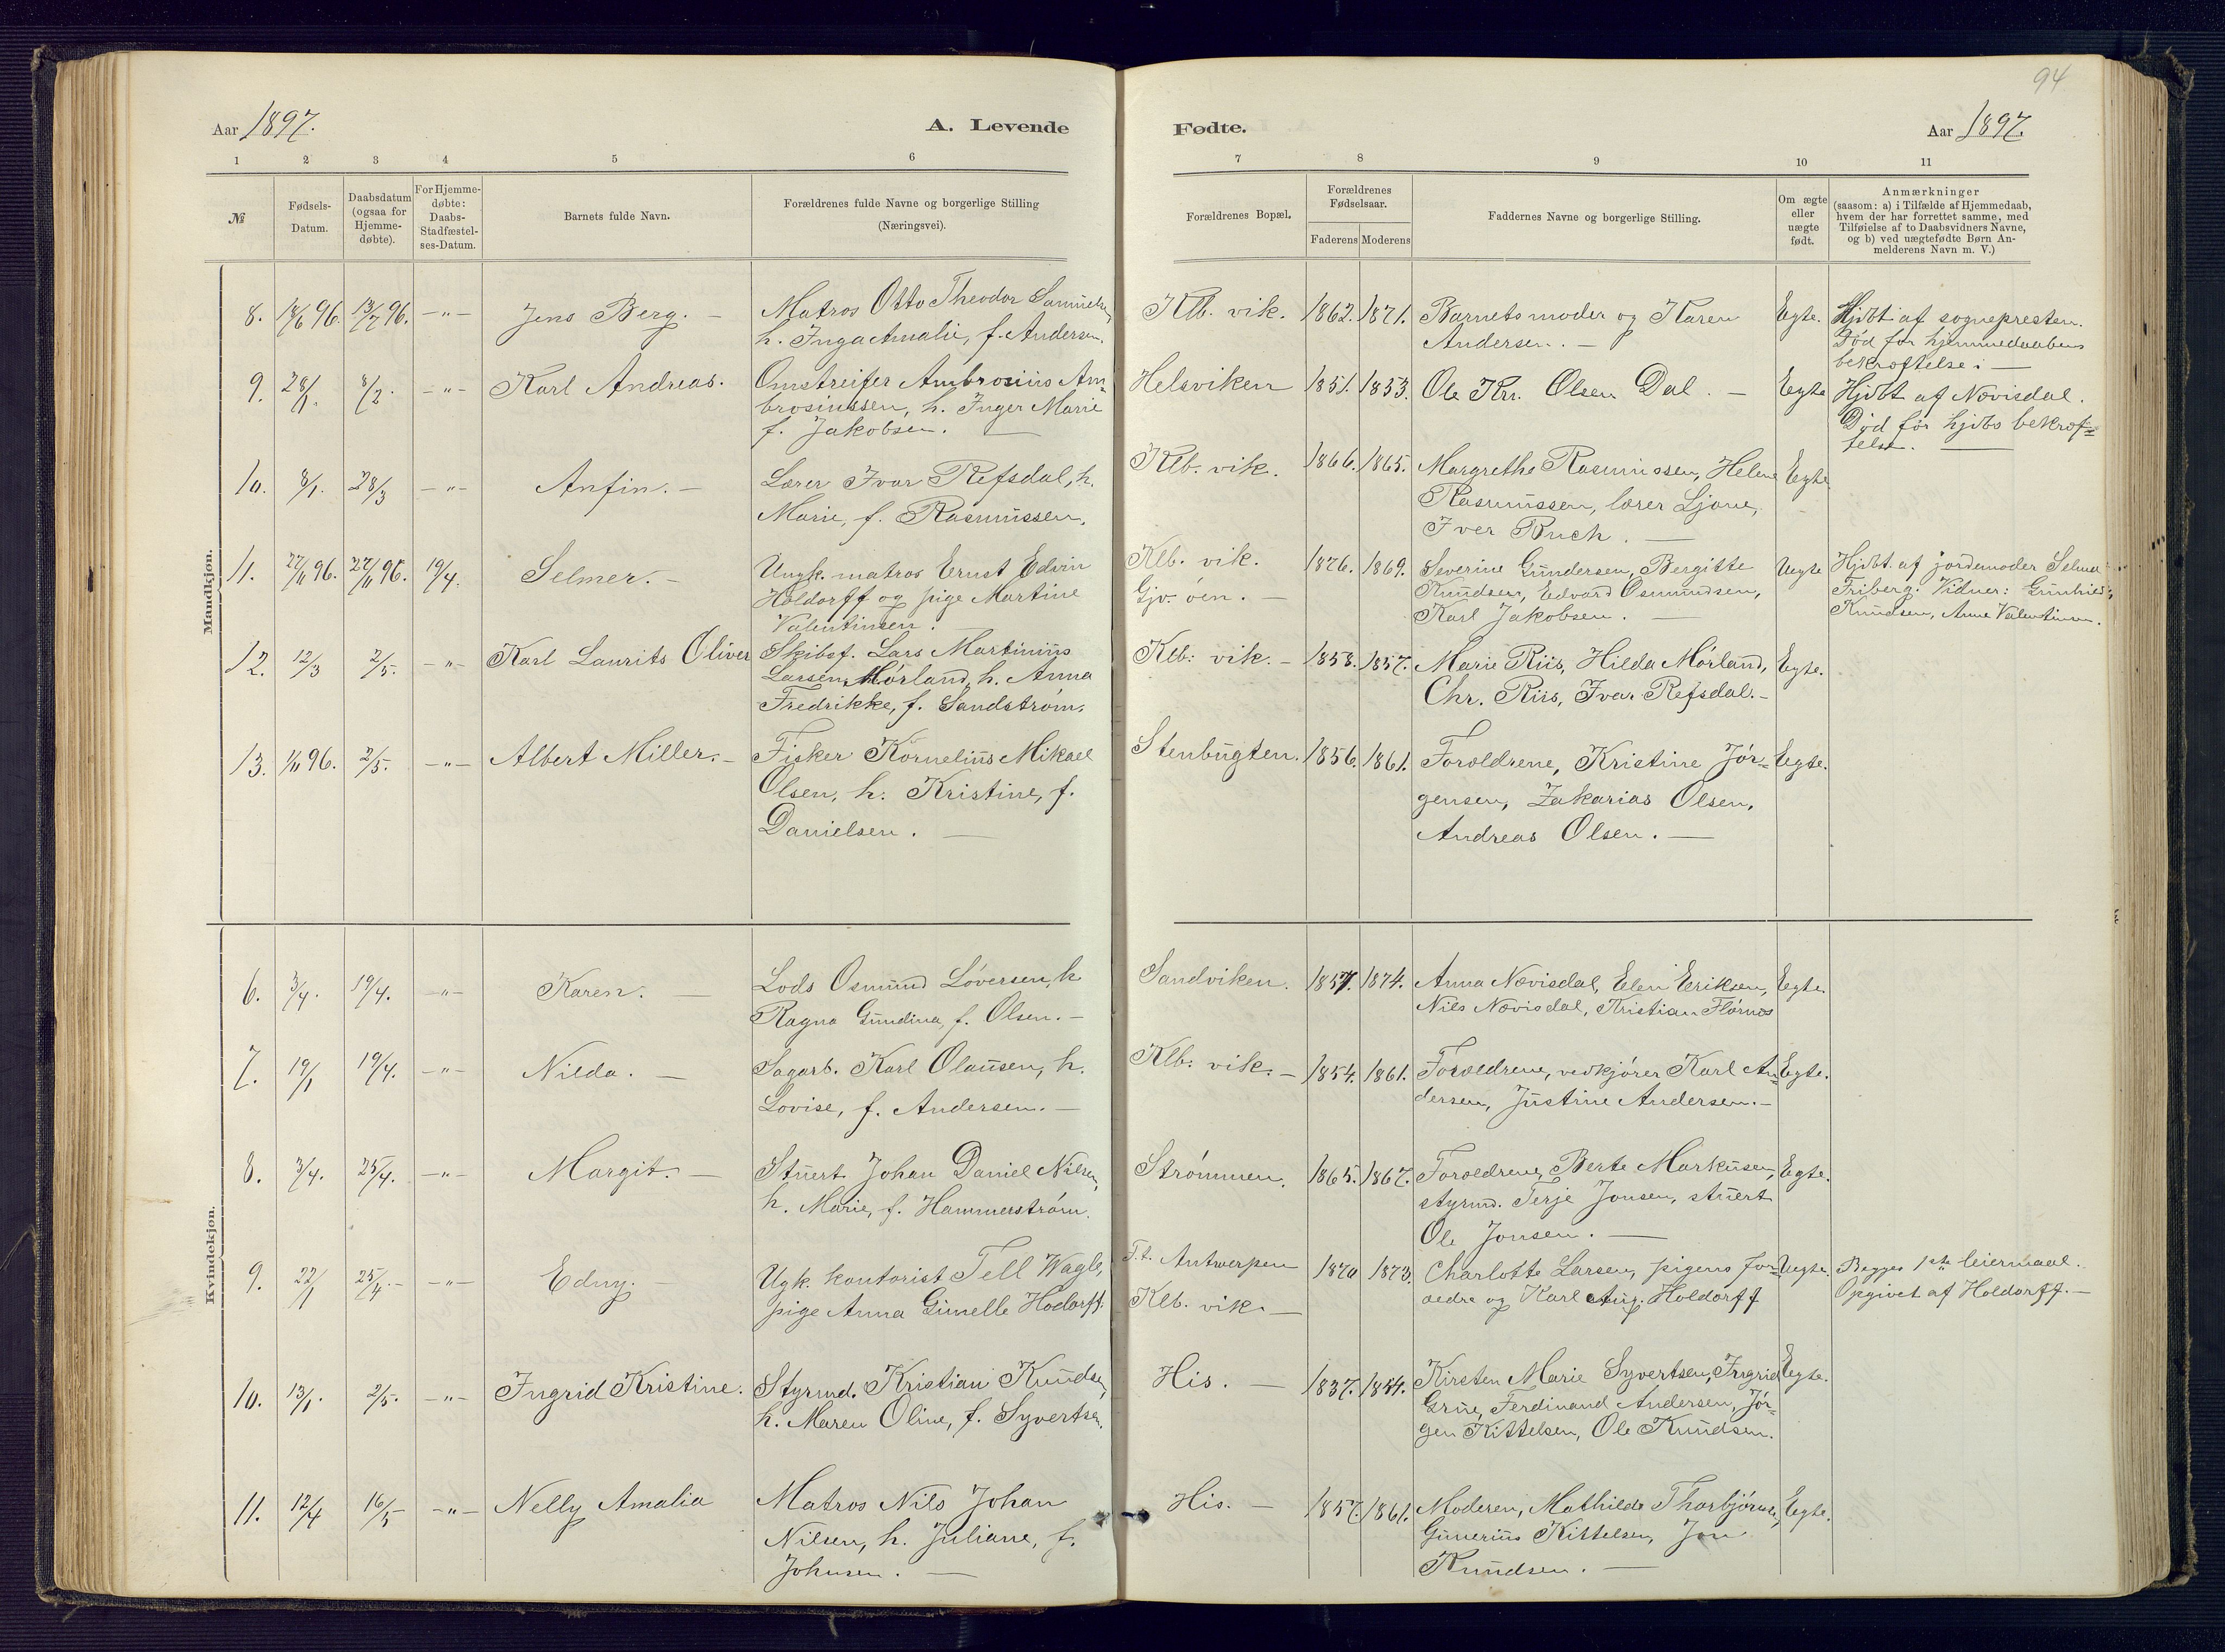 94
Aar 1897.
A. Levende
Fødte.
Aar 1897.
1 2 3 4 5 6 7 8 9 10 11
№
Fødsels-
Datum.
Daabsdatum
(ogsaa for
Hjemme-
døbte).
For Hjemme-
døbte:
Daabs-
Stadfæstel-
ses-Datum.
Barnets fulde Navn.
Forældrenes fulde Navne og borgerlige Stilling
(Næringsvei).
Forældrenes Bopæl.
Forældrenes
Fødselsaar.
Faderens Moderens
Faddernes Navne og borgerlige Stilling.
Om ægte
eller
uægte
født.
Anmærkninger
(saasom: a) i Tilfælde af Hjemmedaab,
hvem der har forrettet samme, med
Tilføielse af to Daabsvidners Navne,
og b) ved uægtefødte Børn An-
melderens Navn m. V.)
Mandkjøn.
8. 18/6 96. 13/7 96. -"- Jens Berg. -
Matros Otto Theodor Samuelsen,
h. Inga Amalie, f. Andersen.
Klb. vik. 1862. 1871.
Barnets moder og Karen
Andersen. -
Egte.
Hjdbt af sognepresten.
Død før hjemmedaabens
bekræftelse. -
9. 28/1. 8/2. -"- Karl Andreas.
Omstreifer Ambrosius Am-
brosiussen, h. Inger Marie
f. Jakobsen. -
Helsviken 1851. 1853.
Ole Kr. Olsen Dal. -
Egte
Hjdbt af Nævisdal.
Død før hjdbs bekræf=
telse. -
10. 8/1. 28/3 -"- Anfin. -
Lærer Ivar Refsdal, h.
Marie, f. Rasmussen.
Klb. vik. 1866. 1865.
Margrethe Rasmussen, Helene
Rasmussen, lærer Ljone,
Iver Buch. -
Egte.
11. 27/11 96. 27/11 96. 19/4. Selmer. -
Ungk. matros Ernst Edvin
Holdorff og pige Martine
Valentinsen.
Klb. vik.
Gjv. øen. -
1876. 1869.
Severine Gundersen, Bergitte
Knudsen, Edvard Osmundsen,
Karl Jakobsen. -
Uegte
Hjdbt. af jordemoder Selma
Friberg. Vidner: Gunhild
Knudsen, Anne Valentinsen.
12. 12/3 2/5. -"- Karl Laurits Oliver
Skibsf. Lars Martinius
Larsen Mørland, h. Anna
Fredrikke, f. Sandstrøm.
Klb: vik. - 1858. 1857.
Marie Riis, Hilda Mørland,
Chr. Riis, Ivar Refsdal. -
Egte.
13. 1/11 96. 2/5. -"- Albert Miller. -
Fisker Kornelius Mikael
Olsen, h. Kristine, f.
Danielsen. -
Stenbugten. 1856. 1861.
Forældrene, Kristine Jør=
gensen, Zakarias Olsen,
Andreas Olsen. -
Egte.
Kvindekjøn.
6. 3/4. 19/4. -"- Karen. -
Lods Osmund Løversen, h
Ragna Gundina, f. Olsen. -
Sandviken. 1857. 1874.
Anna Nævisdal, Elen Eriksen,
Nils Nævisdal, Kristian Flørnes
Egte.
7. 19/1 19/4. -"- Nilda. -
Sagarb. Karl Olausen, h.
Lovise, f. Andersen. -
Klb: vik. - 1854. 1861.
Forældrene, vedkjører Karl An-
dersen, Justine Andersen. -
Egte.
8. 3/4. 25/4. -"- Margit. -
Stuert Johan Daniel Nilsen,
h. Marie, f. Hammerstrøm.
Strømmen. 1865. 1867.
Forældrene, Berte Markusen,
styrmd. Terje Jonsen, stuert
Ole Jonsen. -
Egte.
9. 22/1 25/4. - -"- Edny. -
Ugk. kontorist Tell Wagle,
pige Anna Gimelle Hodorff.
F.t. Antwerpen
Klb. vik. -
1870 1873.
Charlotte Larsen, pigens for-
ældre og Karl Aug. Holdorff
Uegte.
Begges 1ste leiermaal.
Opgivet af Holdorff. -
10. 13/1. 2/5. -"- Ingrid Kristine.
Styrmd. Kristian Knudsen,
h. Maren Oline, f. Syvertsen.
His. - 1837. 1854.
Kirsten Marie Syvertsen, Ingrid
Grue, Ferdinand Andersen, Jør-
gen Kittelsen, Ole Knudsen.
Egte.
11. 12/4 16/5 -"- Nelly Amalia
Matros Nils Johan
Nilsen, h. Juliane, f.
Johnsen. -
His. - 1857. 1861.
Moderen, Mathilde Thorbjørnsen,
Gunerius Kittelsen, Jon
Knudsen. -
Egte.